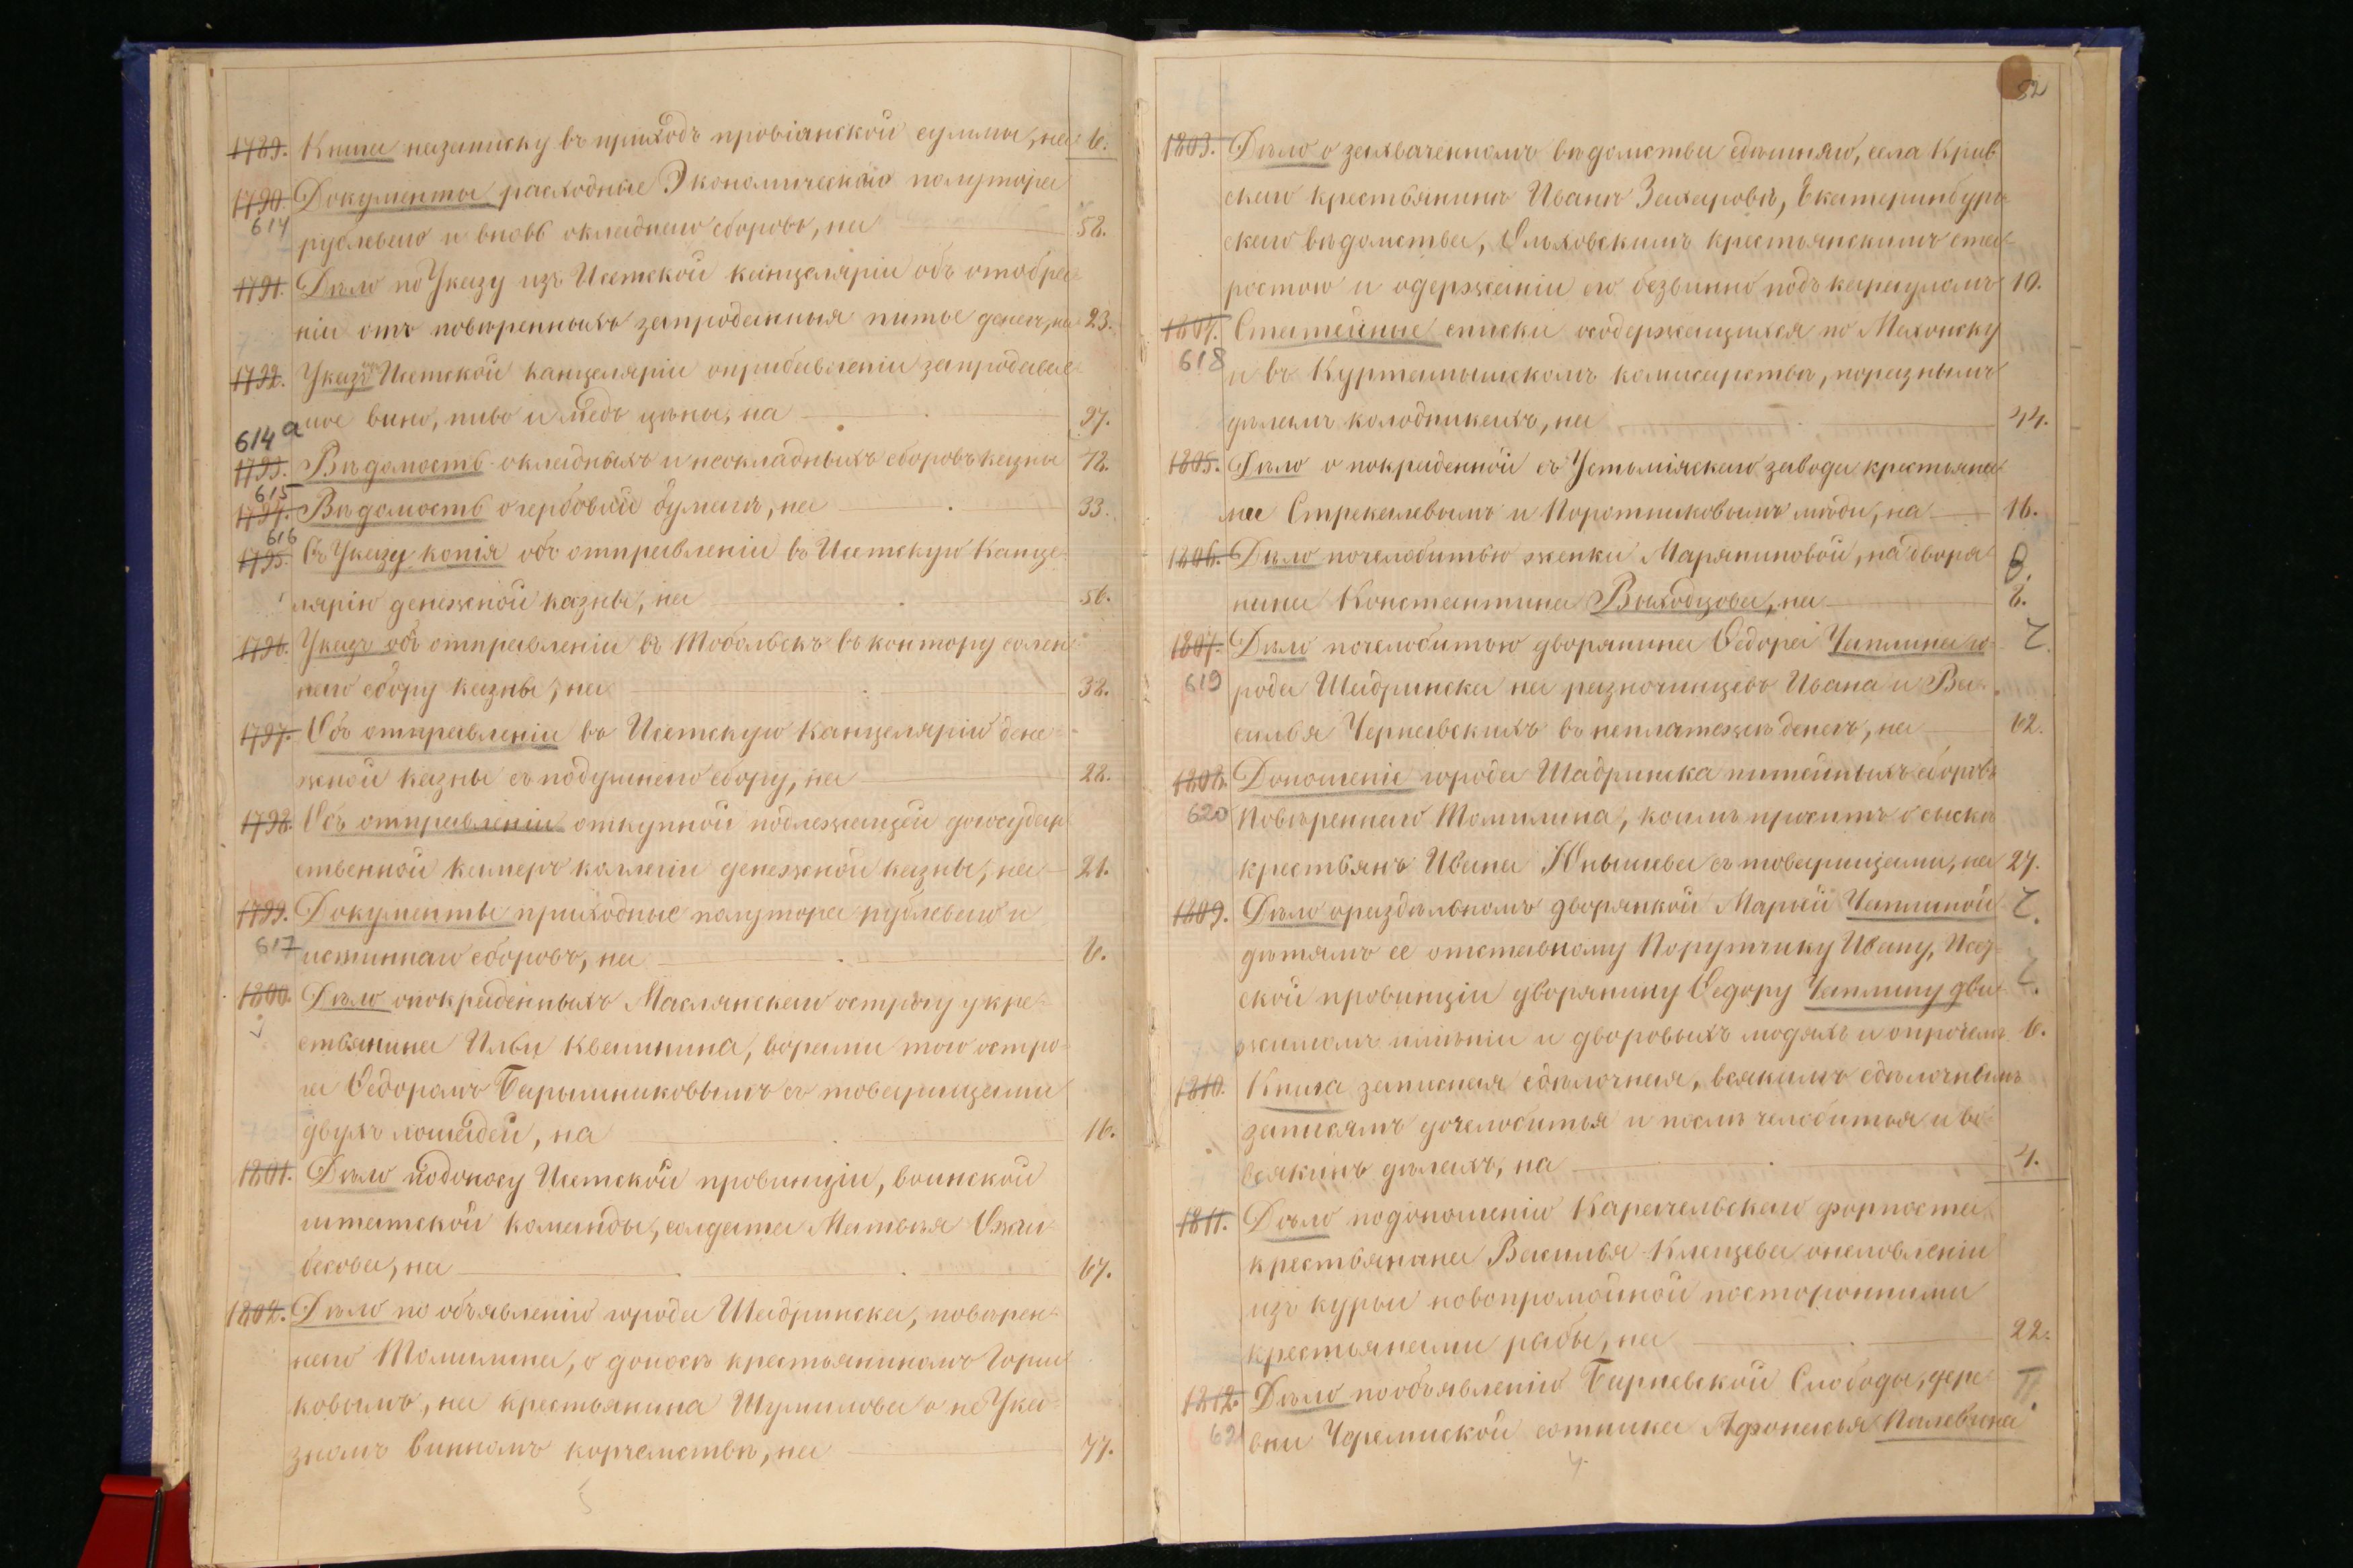 1789. Книга назаписку въ приходъ провіанской суммы, на 6.
1790. Документы расходные Экономическаго полутора
614 рублеваго и вновь окладнаго сборовъ, на 58.
1791. Дѣло по Указу изъ Исетской канцеляріи объ отобра
ніи отъ повѣренныхъ запроданныя питье денегъ, на 23.
1792. Указъ изъ Исетской канцеляріи оприбавленіи запродавае
мое вино, пиво и медъ цѣны, на 27.
614 а
1793. Вѣдомость окладныхъ и неокладныхъ сборовъ казны 72.
615
1794. Вѣдомость о гербовой бумагѣ, на 33.
616
1795. Съ Указу копія объ отправленіи въ Исетскую Канце
лярію денежной казны, на 56.
1796. Указъ объ отправленіи въ Тобольскъ въ контору солен
наго сбору казны, на 32.
1797. Объ отправленіи въ Исетскую Канцелярію дене
жной казны съ подушнаго сбору, на 22.
1798. Объ отправленіи откупной подлежащей догосудар
ственной камеръ коллегіи денежной казны, на 21.
1799. Документы приходные полутора рублеваго и
617 истиннаго сборовъ, на 6.
1800. Дѣло опокраденныхъ Маслянскаго острогу у кре
стьянина Ильи Квашнина, ворами того остро
га Ѳедоромъ Барышниковымъ съ товарищами
двухъ лошадей, на 16.
1801. Дѣло подоносу Исетской провинціи, воинской
штатской команды, солдата Матвея Ожги
бесова, на 67.
1802. Дѣло по объявленію города Шадринска, повѣрен
наго Томилина, о доносѣ крестьяниномъ Горш
ковымъ, на крестьянина Шумилова о не Ука
зномъ винномъ корчемствѣ, на 77.
82
1803. Дѣло о захваченномъ вѣдомства здѣшняго, села Крив
скаго крестьянинѣ Иванѣ Захаровѣ, Екатеринбург
скаго вѣдомства, Ольховскимъ крестьянскимъ ста
ростою и одержаніи его безвинно подъ карауломъ 10.
1804. Статейные списки осодержащихся по Мехонску
618 и въ Куртамышскомъ комисарствѣ, поразнымъ
дѣламъ колодникахъ, на 44.
1805. Дѣло о покраденной съ Устьміяскаго завода крестьяна
ми Стрекалевымъ и Поротниковымъ мѣди, на 16.
1806. Дѣло почелобитью женки Маряниновой, на дворя В.
нина Константина Выходцова, на 8.
1807. Дѣло почелобитью дворянина Ѳедора Чаплина го Ч.
619 рода Шадринска на разночинцевъ Ивана и Ва
силья Чернавскихъ въ неплатежѣ денегъ, на 62.
1808. Доношеніе города Шадринска питейныхъ сборовъ
620 Повѣреннаго Томилина, коимъ проситъ о сыскѣ
крестьянъ Ивана Юнышева съ товарищами, на 27.
1809. Дѣло ораздѣльномъ дворянкой Марьей Чаплиной Ч.
дѣтямъ ее отставному Порутчику Ивану, Исет
ской провинціи дворянину Ѳедору Чаплину дви Ч.
жимомъ имѣніи и дворовыхъ людяхъ и опрочемъ 6.
1810. Книга записная сдѣлочная, всякимъ сдѣлочнымъ
записямъ дочелобитья и послѣ челобитья и во
всякихъ дѣлахъ, на 4.
1811. Дѣло подоношенію Карачельскаго форпоста
крестьянина Василья Клещева оналовленіи
изъ курьи новопромойной посторонними
крестьянами рыбы, на 22.
1812. Дѣло пообъявленію Барневской Слободы, дере П.
621 вни Черемиской сотника Афонасья Палевина